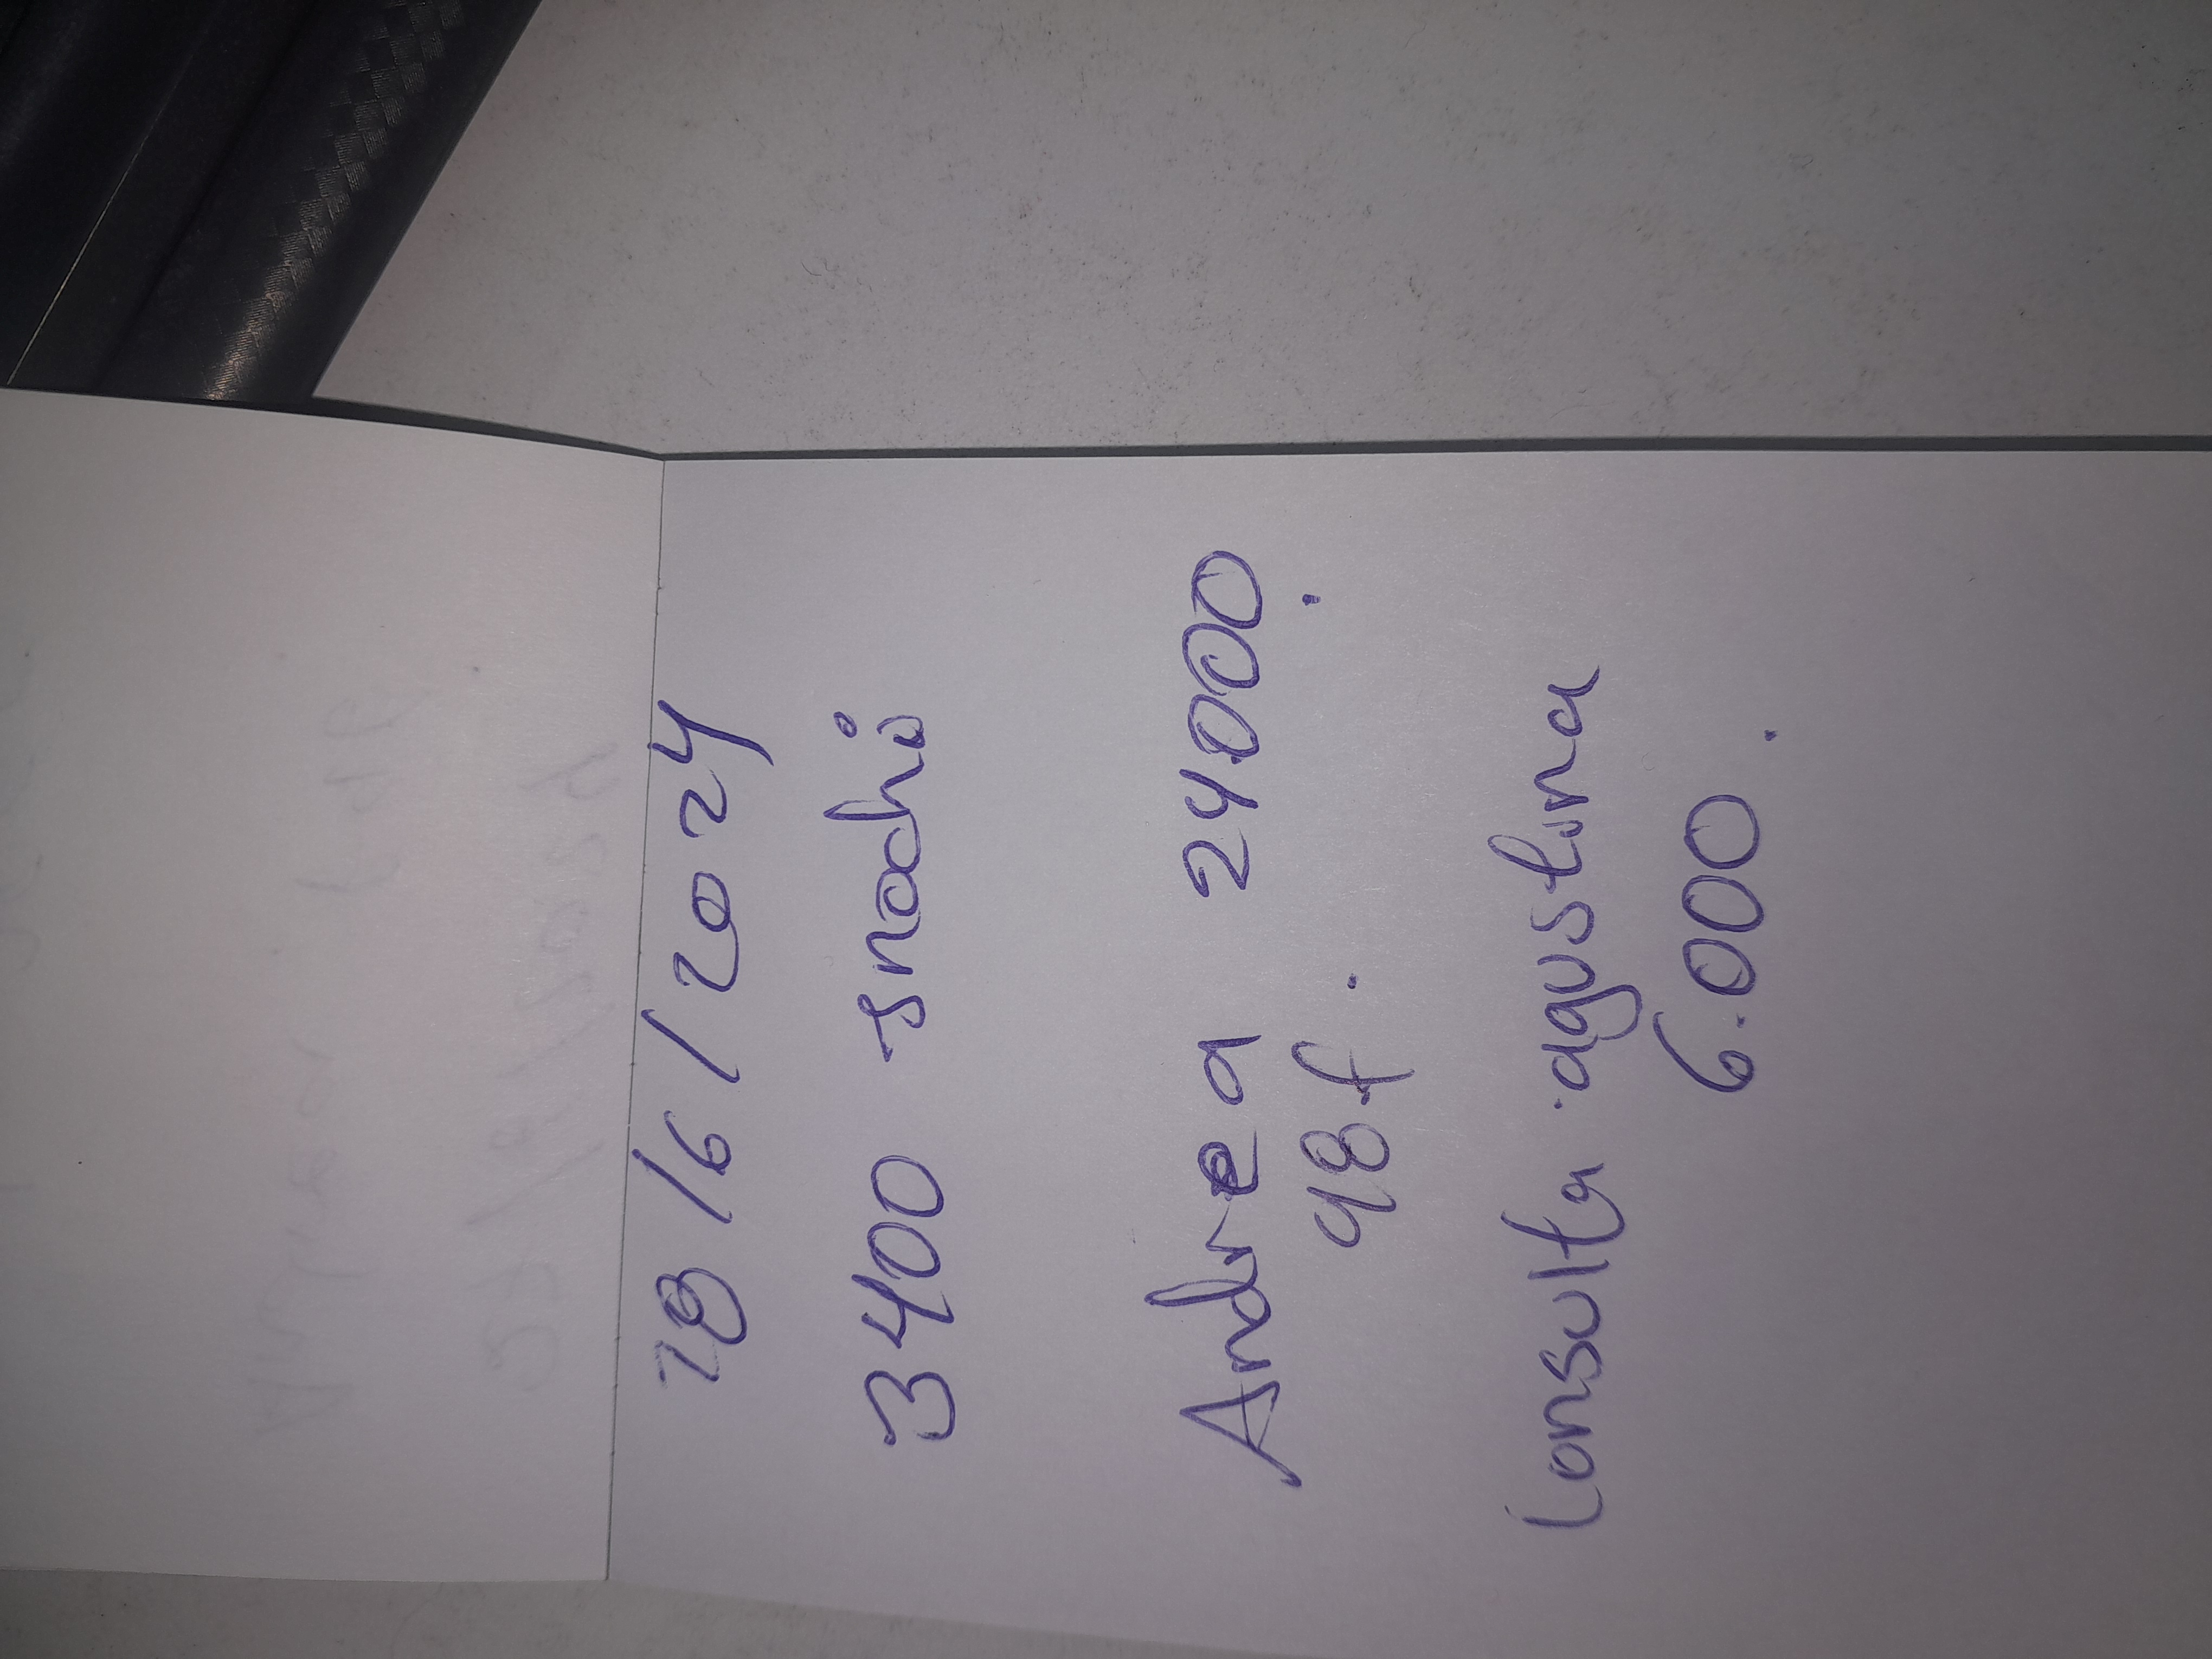 28/6/2024
3400 snachi
Andrea 24000
98f.
Consulta agustina
6.000.